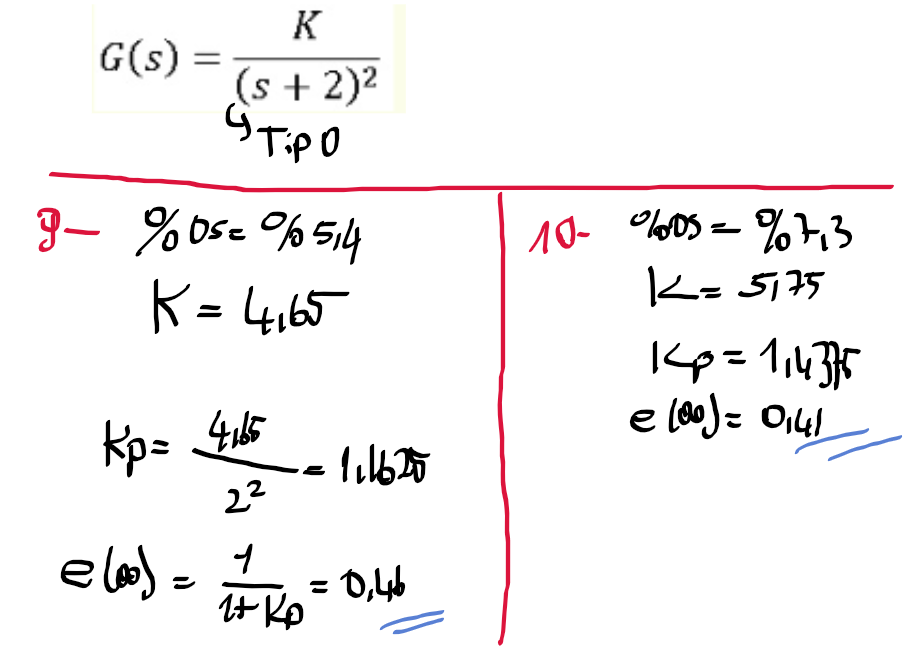 G(s) = K / (s + 2)²
↳ Tip 0
9- %OS = %5,4
K = 4,65
Kp = 4,65 / 2² = 1,1625
e(∞) = 1 / 1+Kp = 0,46
10- %OS = %7,3
K = 5,75
Kp = 1,4375
e(∞) = 0,41